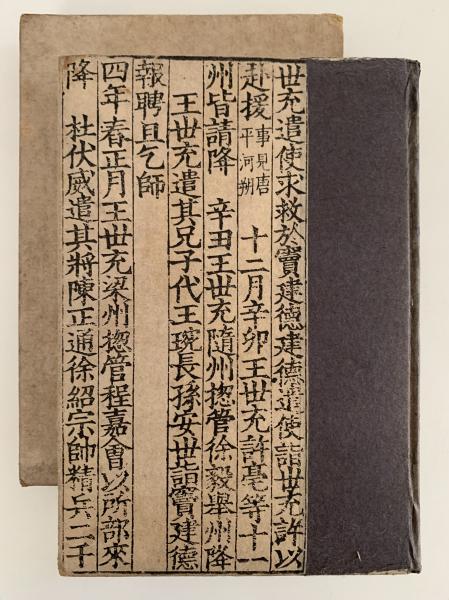 世充遣使求救於竇建德建德遣使詣世充許以
赴援 事見唐平河朔 十二月辛卯王世充許亳等十一
州皆請降 辛丑王世充隨州揔管徐毅舉州降
王世充遣其兄子代王琬長孫安世詣竇建德
報聘且乞師
四年春正月王世充梁州揔管程嘉會以所部來
降 杜伏威遣其將陳正通徐紹宗帥精兵二千